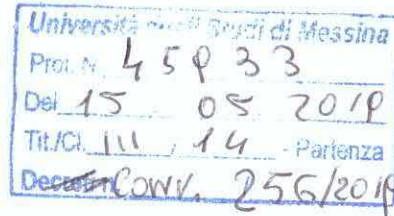 Università degli Studi di Messina
Prot. N. 45833
Del 15 05 2018
Tit./Cl. III / 14 - Partenza
CONV. 256/2018